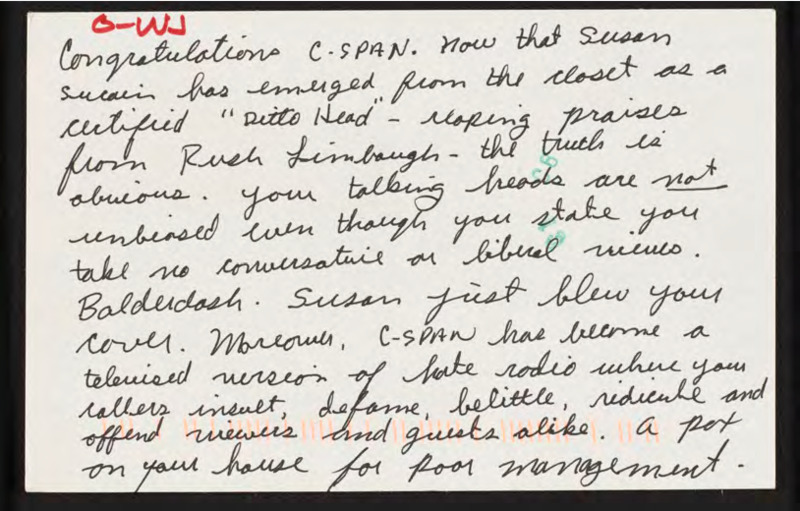 O-WJ
Congratulations C-SPAN. Now that Susan
Swain has emerged from the closet as a
certified "Ditto Head" - reaping praises
from Rush Limbaugh - the truth is
obvious. Your talking heads are not
unbiased even though you state you
take no conversative or liberal views.
Balderdash. Susan just blew your
cover. Moreover, C-SPAN has become a
televised version of hate radio where your
callers insult, defame, belittle, ridicule and
offend viewers and guests alike. A pox
on your house for poor management.